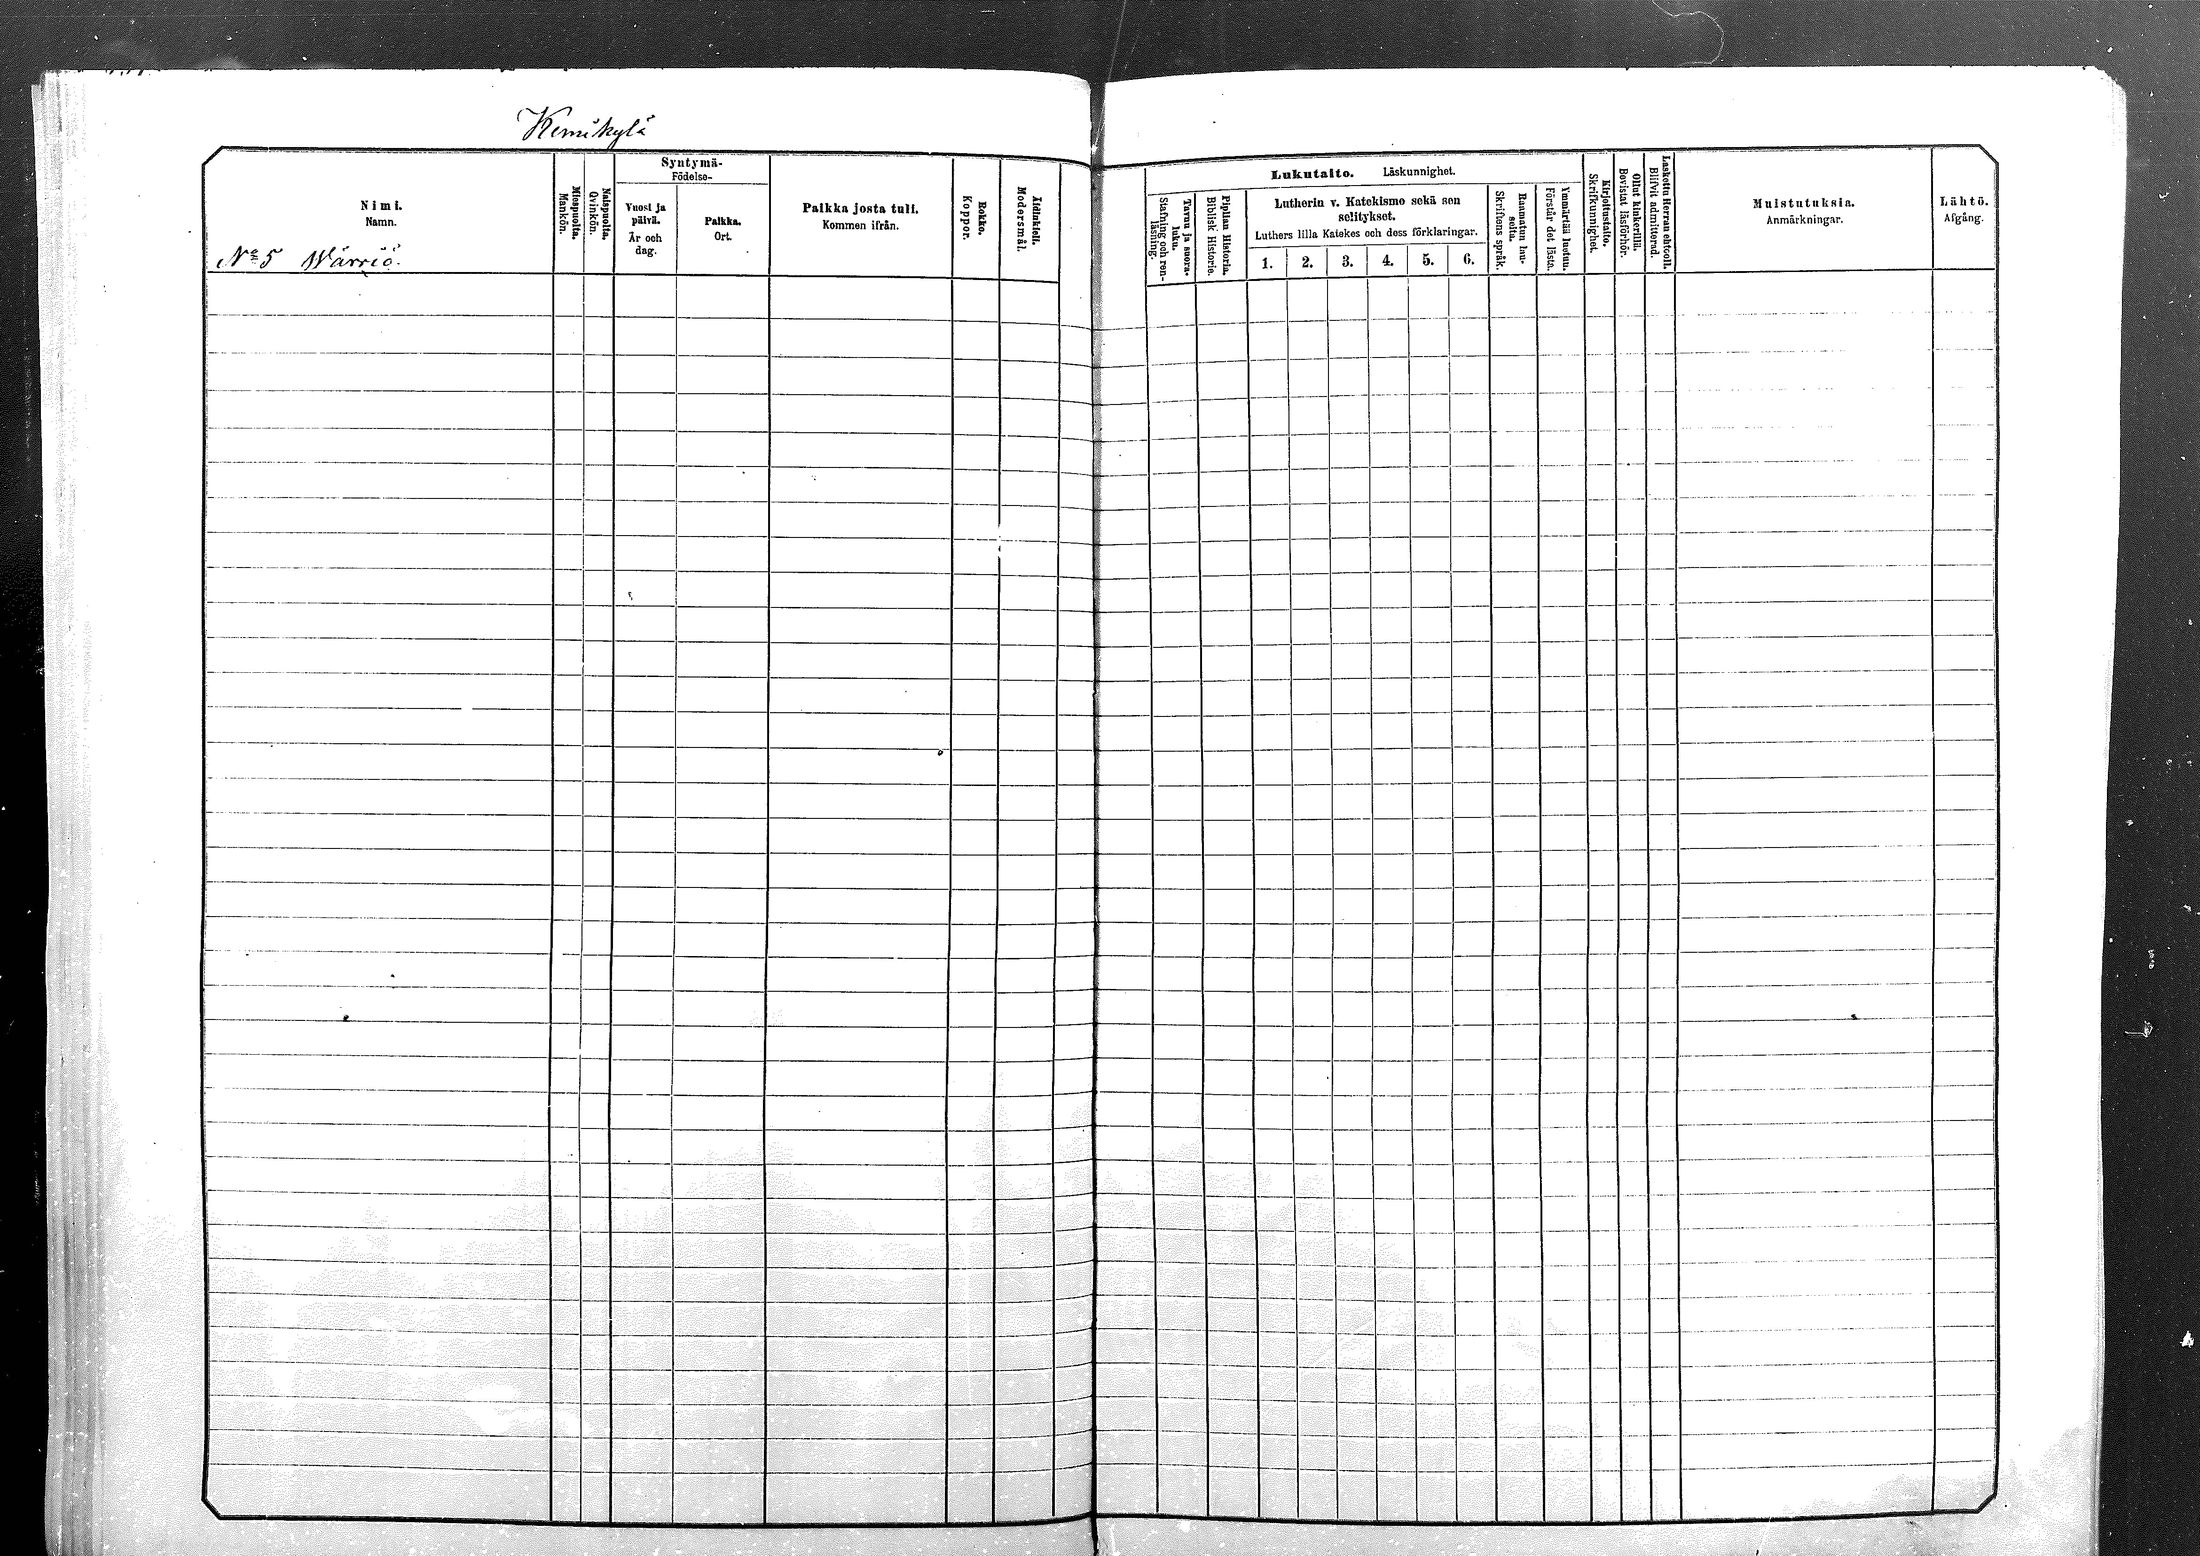 Kemikylä
Nimi.
Namn.
No 5 Wärriö.
Miespuolta.
Mankön.
Naispuolta.
Qvinkön.
Syntymä-
Födelse-
Vuosi ja
päivä.
År och
dag.
Paikka.
Ort.
Paikka josta tuli.
Kommen ifrån.
Rokko.
Koppor.
Äidinkieli.
Modersmål.
Lukutaito. Läskunnighet.
Tavu ja suora-
luku.
Stafning och ren-
läsning.
Piplian Historia.
Biblisk Historie.
Lutherin v. Katekismo sekä sen
selitykset.
Luthers lilla Katekes och dess förklaringar.
1. 2. 3. 4. 5. 6.
Raamatun lau-
seita.
Skriftens språk.
Ymmärtää luetun.
Förstår det lästa.
Kirjoitustaito.
Skrifkunnighet.
Ollut kinkerillä.
Bevistat läsförhör.
Laskettu Herran ehtoll.
Blifvit admitterad.
Muistutuksia.
Anmärkningar.
Lähtö.
Afgång.